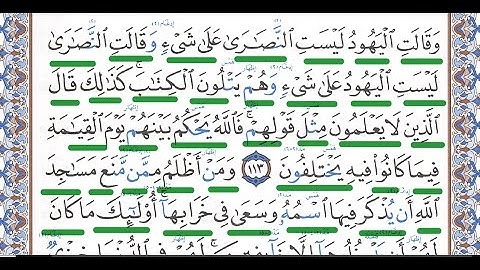 وَقَالَتِ الْيَهُودُ لَيْسَتِ النَّصَارَىٰ عَلَىٰ شَيْءٍ وَقَالَتِ النَّصَارَىٰ
لَيْسَتِ الْيَهُودُ عَلَىٰ شَيْءٍ وَهُمْ يَتْلُونَ الْكِتَابَ ۗ كَذَٰلِكَ قَالَ
الَّذِينَ لَا يَعْلَمُونَ مِثْلَ قَوْلِهِمْ ۚ فَاللَّهُ يَحْكُمُ بَيْنَهُمْ يَوْمَ الْقِيَامَةِ
فِيمَا كَانُوا فِيهِ يَخْتَلِفُونَ ١١٣ وَمَنْ أَظْلَمُ مِمَّنْ مَنَعَ مَسَاجِدَ
اللَّهِ أَنْ يُذْكَرَ فِيهَا اسْمُهُ وَسَعَىٰ فِي خَرَابِهَا ۚ أُولَٰئِكَ مَا كَانَ